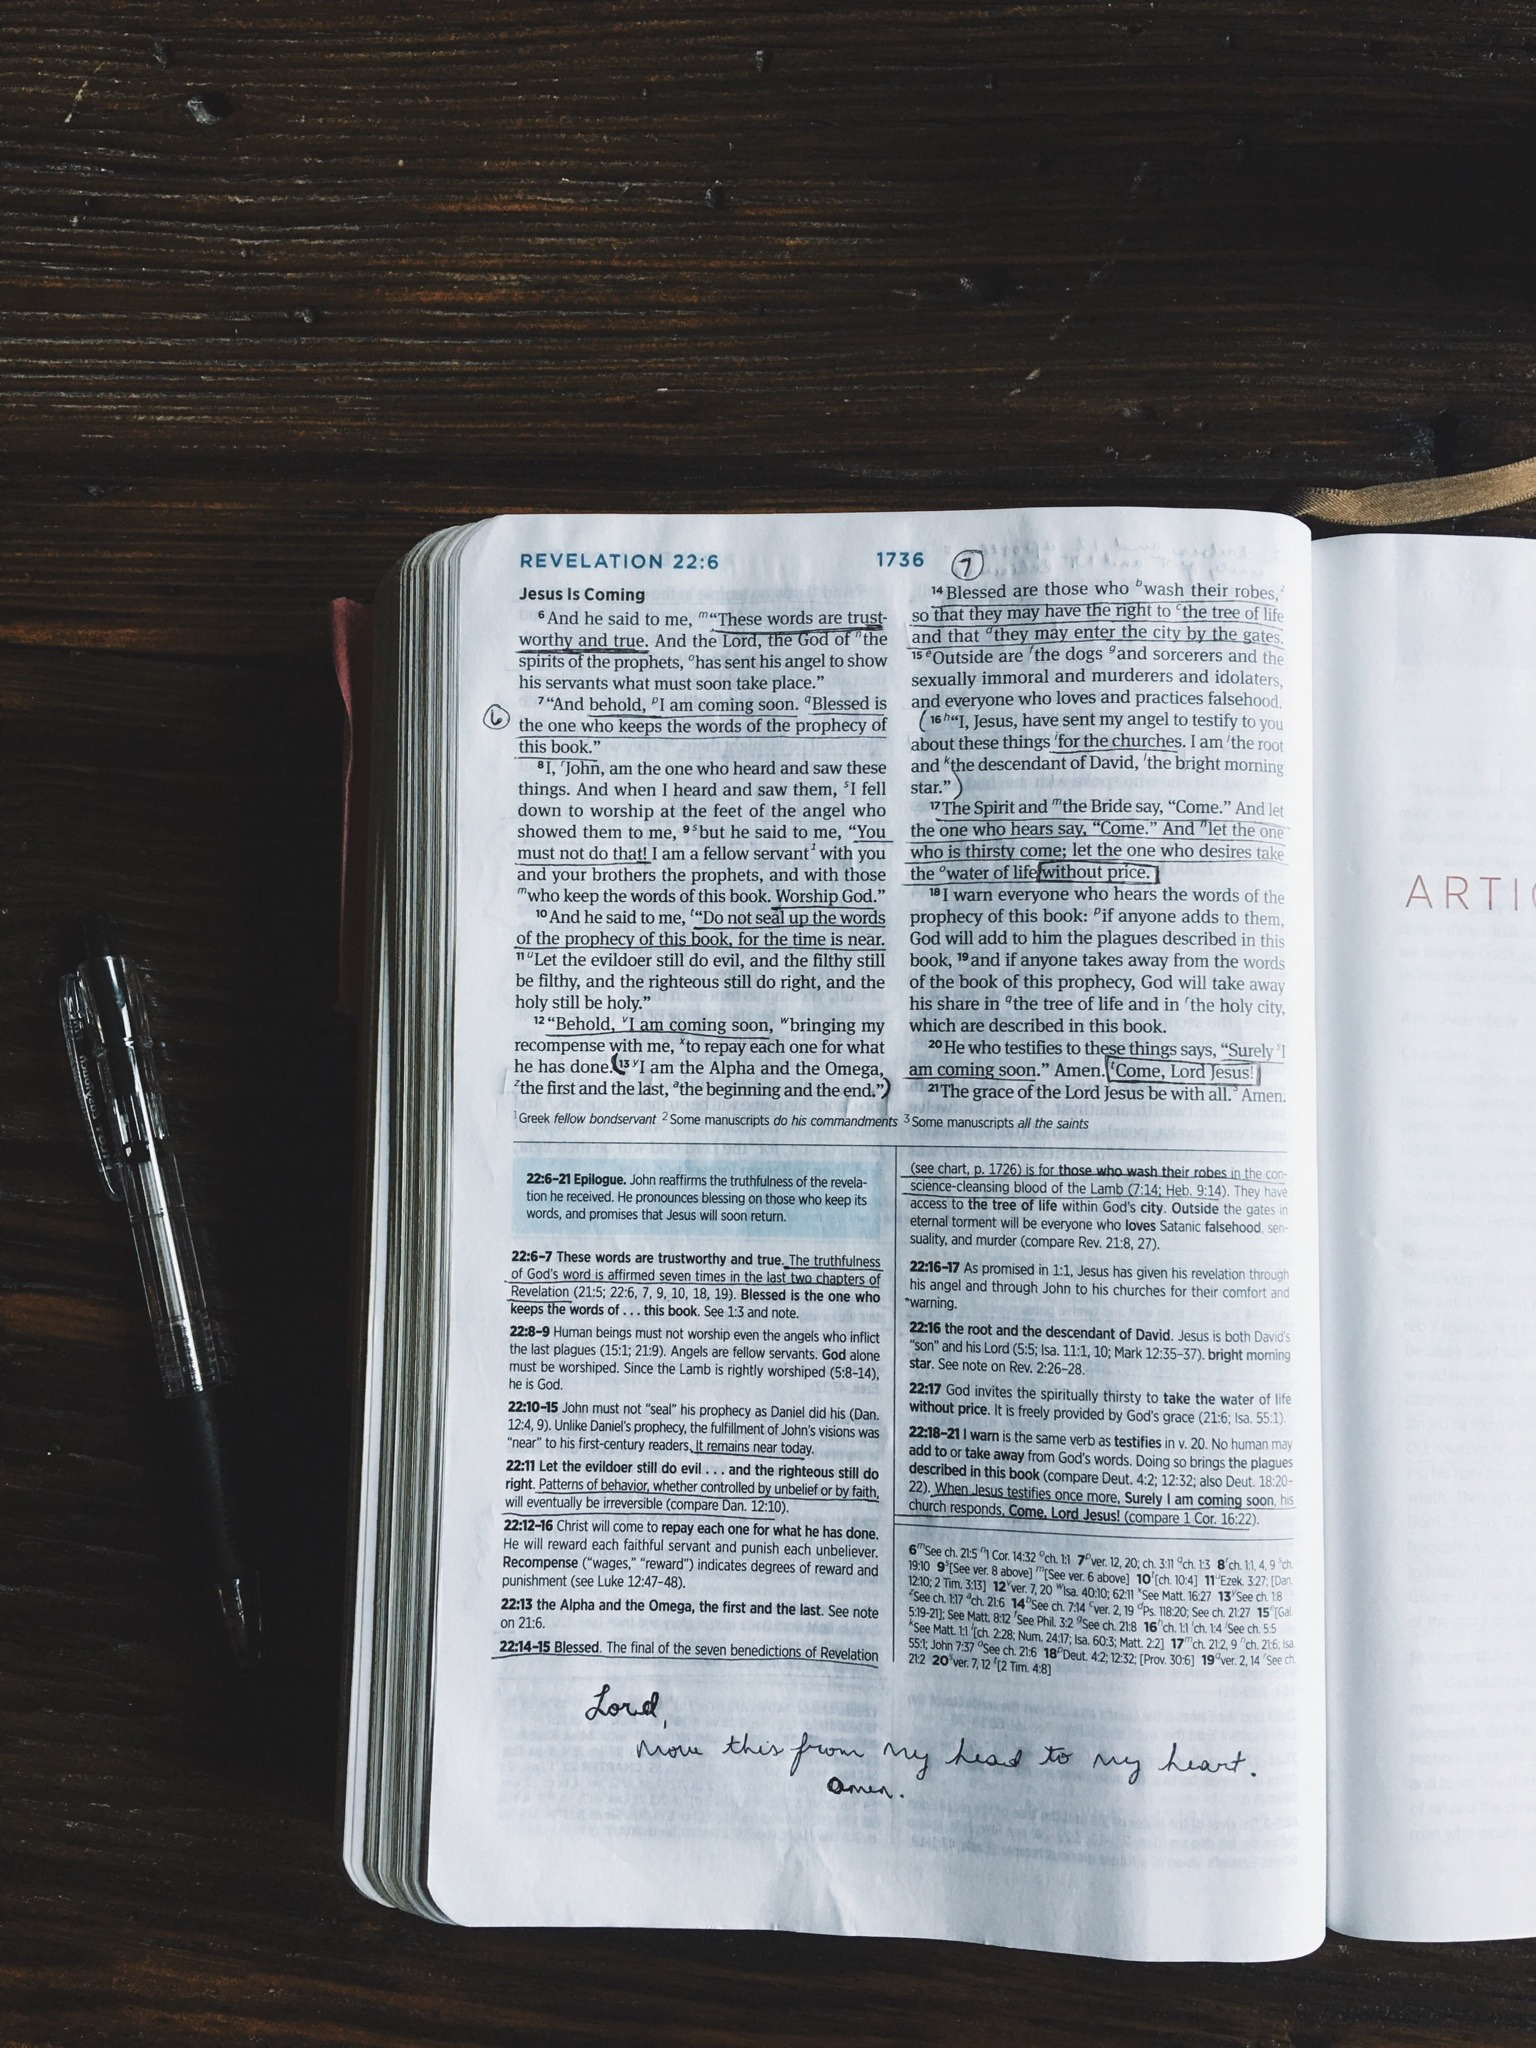 REVELATION 22:6
1736
Jesus Is Coming
6 And he said to me, m“These words are trust-
worthy and true. And the Lord, the God of nthe
spirits of the prophets, ohas sent his angel to show
his servants what must soon take place.”
6
7 “And behold, pI am coming soon. qBlessed is
the one who keeps the words of the prophecy of
this book.”
8 I, rJohn, am the one who heard and saw these
things. And when I heard and saw them, sI fell
down to worship at the feet of the angel who
showed them to me, 9 sbut he said to me, “You
must not do that! I am a fellow servant1 with you
and your brothers the prophets, and with those
mwho keep the words of this book. Worship God.”
10 And he said to me, t“Do not seal up the words
of the prophecy of this book, for the time is near.
11 uLet the evildoer still do evil, and the filthy still
be filthy, and the righteous still do right, and the
holy still be holy.”
12 “Behold, vI am coming soon, wbringing my
recompense with me, xto repay each one for what
he has done. (13 yI am the Alpha and the Omega,
zthe first and the last, athe beginning and the end.”)
7
14 Blessed are those who bwash their robes,2
so that they may have the right to cthe tree of life
and that dthey may enter the city by the gates.
15 eOutside are fthe dogs gand sorcerers and the
sexually immoral and murderers and idolaters,
and everyone who loves and practices falsehood.
(16 h“I, Jesus, have sent my angel to testify to you
about these things ifor the churches. I am jthe root
and kthe descendant of David, lthe bright morning
star.”)
17 The Spirit and mthe Bride say, “Come.” And let
the one who hears say, “Come.” And nlet the one
who is thirsty come; let the one who desires take
the owater of life without price.
18 I warn everyone who hears the words of the
prophecy of this book: pif anyone adds to them,
God will add to him the plagues described in this
book, 19 and if anyone takes away from the words
of the book of this prophecy, God will take away
his share in qthe tree of life and in rthe holy city,
which are described in this book.
20 He who testifies to these things says, “Surely sI
am coming soon.” Amen. tCome, Lord Jesus!
21 The grace of the Lord Jesus be with all.3 Amen.
1 Greek fellow bondservant 2 Some manuscripts do his commandments 3 Some manuscripts all the saints
22:6–21 Epilogue. John reaffirms the truthfulness of the revela-
tion he received. He pronounces blessing on those who keep its
words, and promises that Jesus will soon return.
22:6–7 These words are trustworthy and true. The truthfulness
of God’s word is affirmed seven times in the last two chapters of
Revelation (21:5; 22:6, 7, 9, 10, 18, 19). Blessed is the one who
keeps the words of . . . this book. See 1:3 and note.
22:8–9 Human beings must not worship even the angels who inflict
the last plagues (15:1; 21:9). Angels are fellow servants. God alone
must be worshiped. Since the Lamb is rightly worshiped (5:8–14),
he is God.
22:10–15 John must not “seal” his prophecy as Daniel did his (Dan.
12:4, 9). Unlike Daniel’s prophecy, the fulfillment of John’s visions was
“near” to his first-century readers. It remains near today.
22:11 Let the evildoer still do evil . . . and the righteous still do
right. Patterns of behavior, whether controlled by unbelief or by faith,
will eventually be irreversible (compare Dan. 12:10).
22:12–16 Christ will come to repay each one for what he has done.
He will reward each faithful servant and punish each unbeliever.
Recompense (“wages,” “reward”) indicates degrees of reward and
punishment (see Luke 12:47–48).
22:13 the Alpha and the Omega, the first and the last. See note
on 21:6.
22:14–15 Blessed. The final of the seven benedictions of Revelation
(see chart, p. 1726) is for those who wash their robes in the con-
science-cleansing blood of the Lamb (7:14; Heb. 9:14). They have
access to the tree of life within God’s city. Outside the gates in
eternal torment will be everyone who loves Satanic falsehood, sen-
suality, and murder (compare Rev. 21:8, 27).
22:16–17 As promised in 1:1, Jesus has given his revelation through
his angel and through John to his churches for their comfort and
warning.
22:16 the root and the descendant of David. Jesus is both David’s
“son” and his Lord (5:5; Isa. 11:1, 10; Mark 12:35–37). bright morning
star. See note on Rev. 2:26–28.
22:17 God invites the spiritually thirsty to take the water of life
without price. It is freely provided by God’s grace (21:6; Isa. 55:1).
22:18–21 I warn is the same verb as testifies in v. 20. No human may
add to or take away from God’s words. Doing so brings the plagues
described in this book (compare Deut. 4:2; 12:32; also Deut. 18:20–
22). When Jesus testifies once more, Surely I am coming soon, his
church responds, Come, Lord Jesus! (compare 1 Cor. 16:22).
6 mSee ch. 21:5 n1 Cor. 14:32 och. 1:1 7 pver. 12, 20; ch. 3:11 qch. 1:3 8 rch. 1:1, 4, 9 sch.
19:10 9 s[See ver. 8 above] m[See ver. 6 above] 10 t[ch. 10:4] 11 uEzek. 3:27; [Dan.
12:10; 2 Tim. 3:13] 12 vver. 7, 20 wIsa. 40:10; 62:11 xSee Matt. 16:27 13 ySee ch. 1:8
zSee ch. 1:17 ach. 21:6 14 bSee ch. 7:14 cver. 2, 19 dPs. 118:20; See ch. 21:27 15 e[Gal.
5:19-21]; See Matt. 8:12 fSee Phil. 3:2 gSee ch. 21:8 16 hch. 1:1 ich. 1:4 jSee ch. 5:5
kSee Matt. 1:1 l[ch. 2:28; Num. 24:17; Isa. 60:3; Matt. 2:2] 17 mch. 21:2, 9 nch. 21:6; Isa.
55:1; John 7:37 oSee ch. 21:6 18 pDeut. 4:2; 12:32; [Prov. 30:6] 19 qver. 2, 14 rSee ch.
21:2 20 sver. 7, 12 t[2 Tim. 4:8]
Lord,
move this from my head to my heart.
amen.
ARTIC